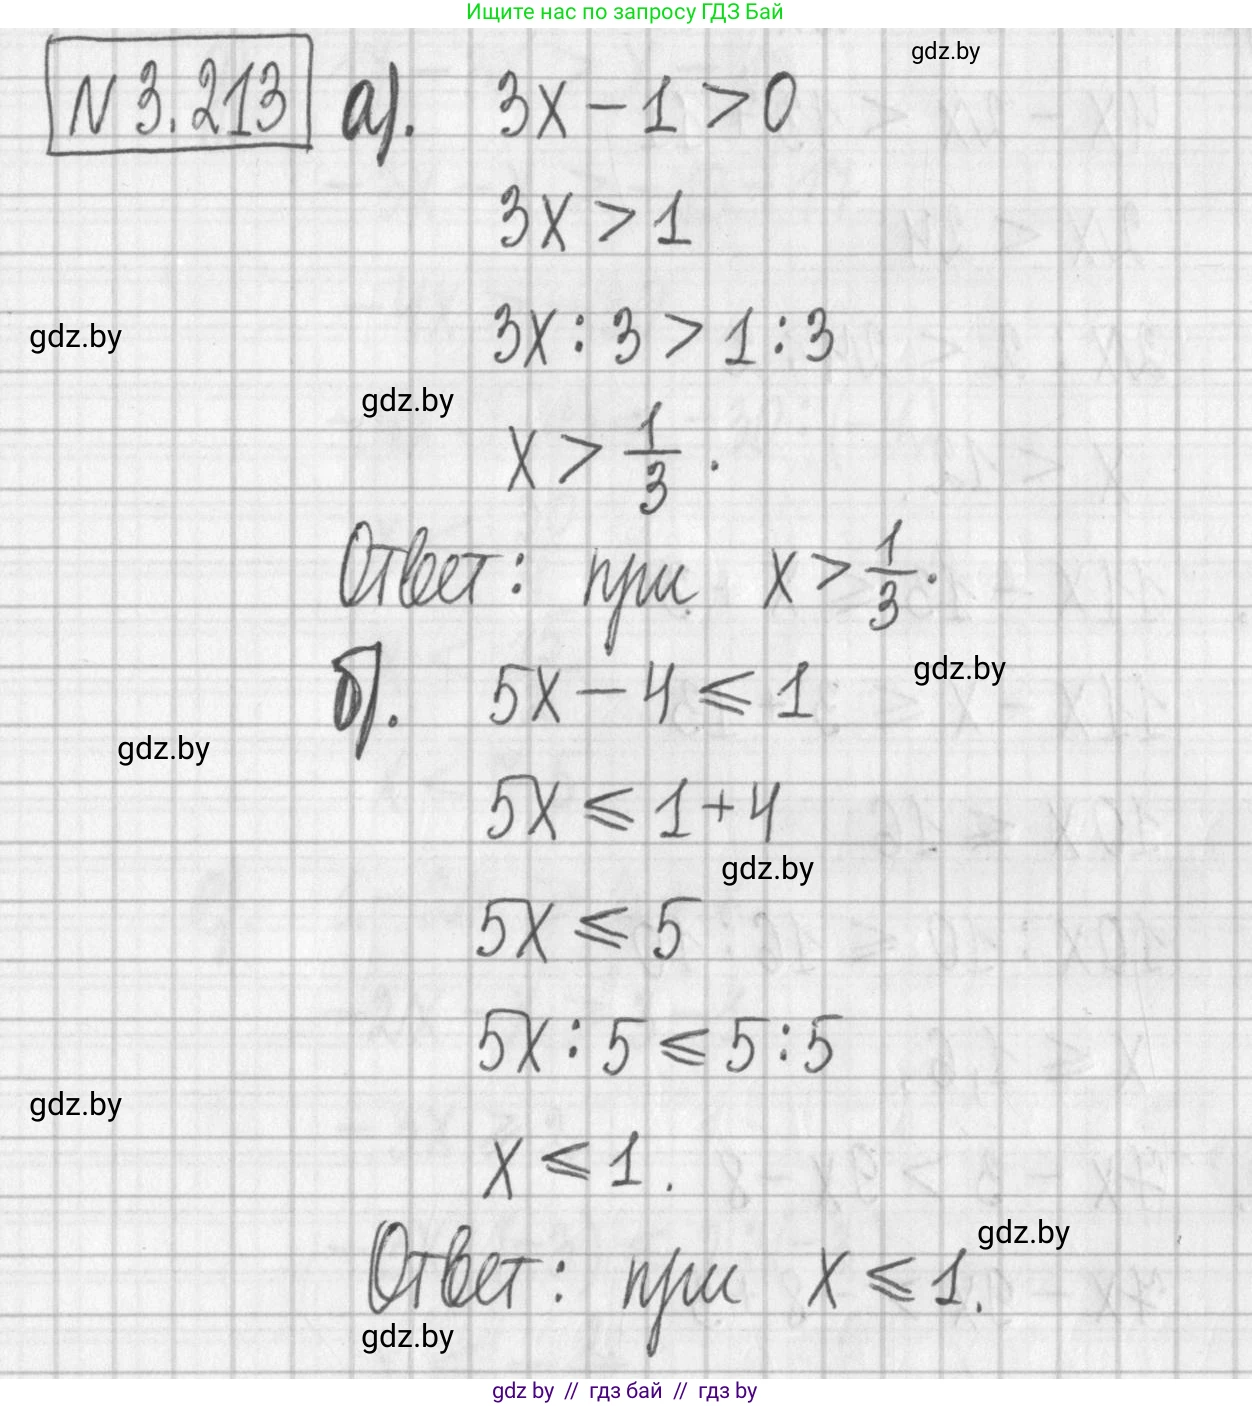 Ищите нас по запросу ГДЗ Бай
gdz.by
N 3.213 а). 3x - 1 > 0
3x > 1
gdz.by
3x : 3 > 1 : 3
gdz.by
x > 1/3 .
Ответ: при x > 1/3 .
gdz.by
б). 5x - 4 ⩽ 1
gdz.by
5x ⩽ 1 + 4
gdz.by
5x ⩽ 5
5x : 5 ⩽ 5 : 5
gdz.by
x ⩽ 1 .
gdz.by
Ответ: при x ⩽ 1.
gdz.by
gdz by // гдз бай // гдз by